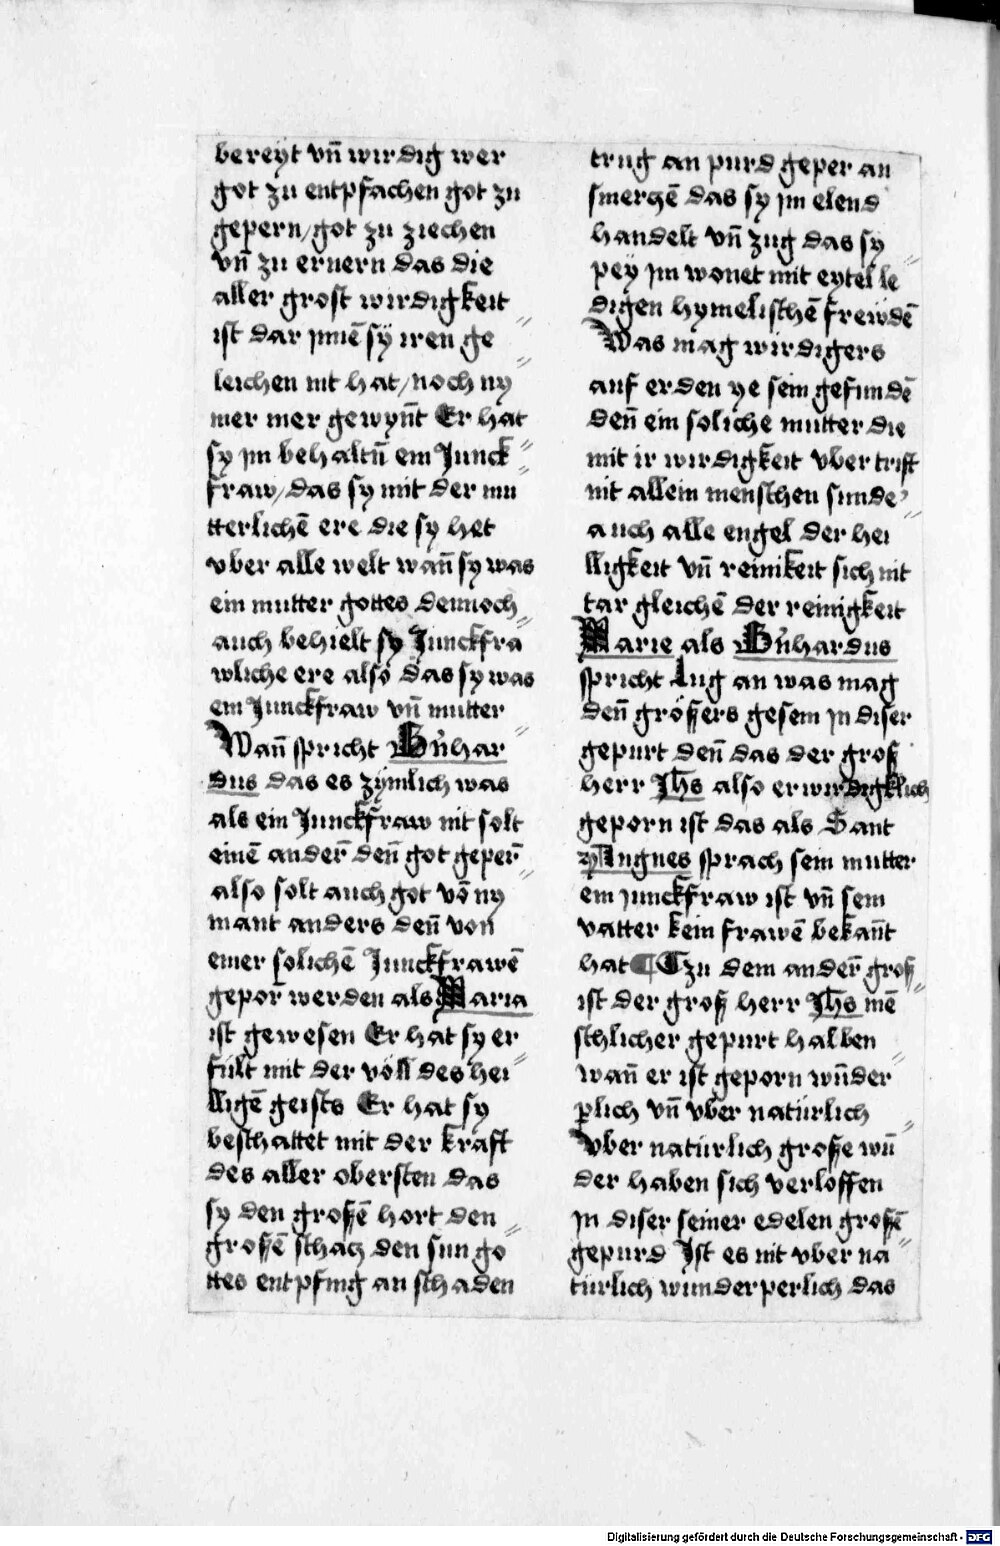 bereyt vn̄ wirdig wer
got zu entpfachen got zu
gepern/got zu ziechen
vn̄ zu ernern das die
aller grost wirdigkeit
ist dar jnnē sÿ iren ge⸗
leichen nit hat/noch ny⸗
mer mer gewyn̄t Er hat
sy jm behaltn̄ ein Junck⸗
fraw/das sy mit der mu
tterlichē ere die sy het
vber alle welt wan̄ sy was
ein mutter gottes dennoch
auch behielt sy Junckfra⸗
wliche ere also das sy was
ein Junckfraw vn̄ mutter
Wan̄ spricht Bn̄har⸗
dus das es zymlich was
als ein Junckfraw nit solt
einē ander̄ den̄ got geper̄
also solt auch got vō ny⸗
mant anders den̄ von
einer solichē Junckfrawē
gepor̄ werden als Maria
ist gewesen Er hat sy er⸗
fült mit der völl des hei⸗
lligē geists Er hat sy
beschattet mit der kraft
des aller obersten das
sy den grossē hort den
grossē schacz den sun go⸗
ttes entpfing an schaden
trug an purd geper an
smerczē das sy jm elend
handelt vn̄ zug das sy
pey jm wonet mit eytel le⸗
digen hymelischē frewdē
Was mag wirdigers
auf erden ye sein gefundē
den̄ ein soliche mutter die
mit ir wirdigkeit vber trift
nit allein menschen sunder
auch alle engel der hei⸗
lligkeit vn̄ reinikeit sich nit
tar gleichē der reinigkeit
Marie als Bn̄hardus
spricht Lug an was mag
den̄ grössers gesein jn diser
gepurt den̄ das der gross
herr Jhs also erwirdigklich
geporn ist das als Sant
Angnes sprach sein mutter
ein junckfraw ist vn̄ sein
vatter kein frawē bekan̄t
hat ¶ Czu dem ander̄ gross
ist der gross herr Jhs mē⸗
schlicher gepurt halben
wan̄ er ist geporn wūder⸗
perlich vn̄ vber natürlich
vber natürlich grosse wū⸗
der haben sich verloffen
jn diser seiner edelen grossē
gepurd Jst es nit vber na⸗
türlich wunderperlich das
Digitalisierung gefördert durch die Deutsche Forschungsgemeinschaft - DFG